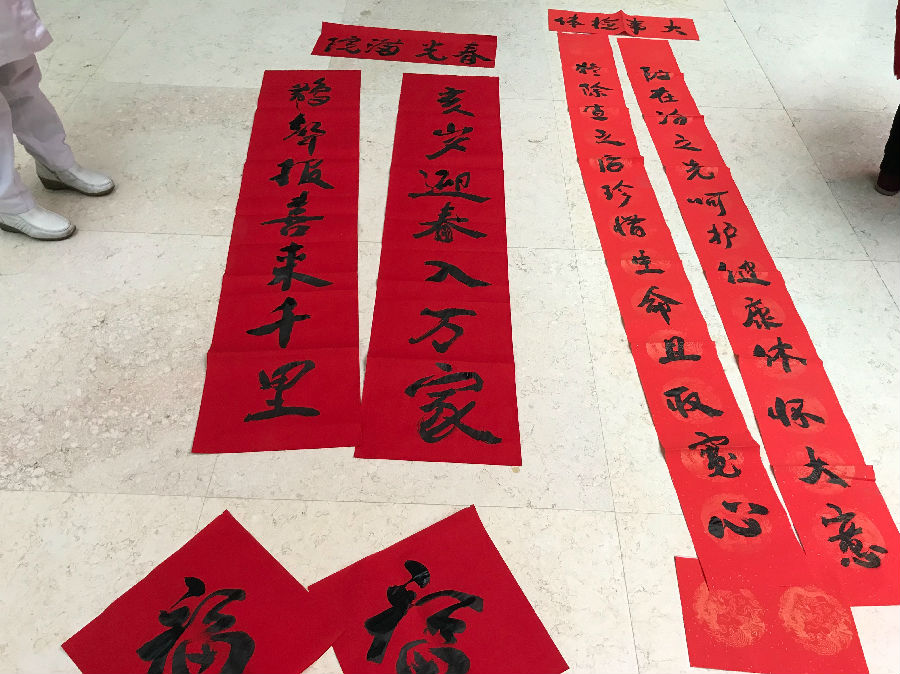 春光满院
亥岁迎春入万家
鹊声报喜来千里
体检事大
防在治之先呵护健康休怀大意
除查之后珍惜生命且取宽心
福
福